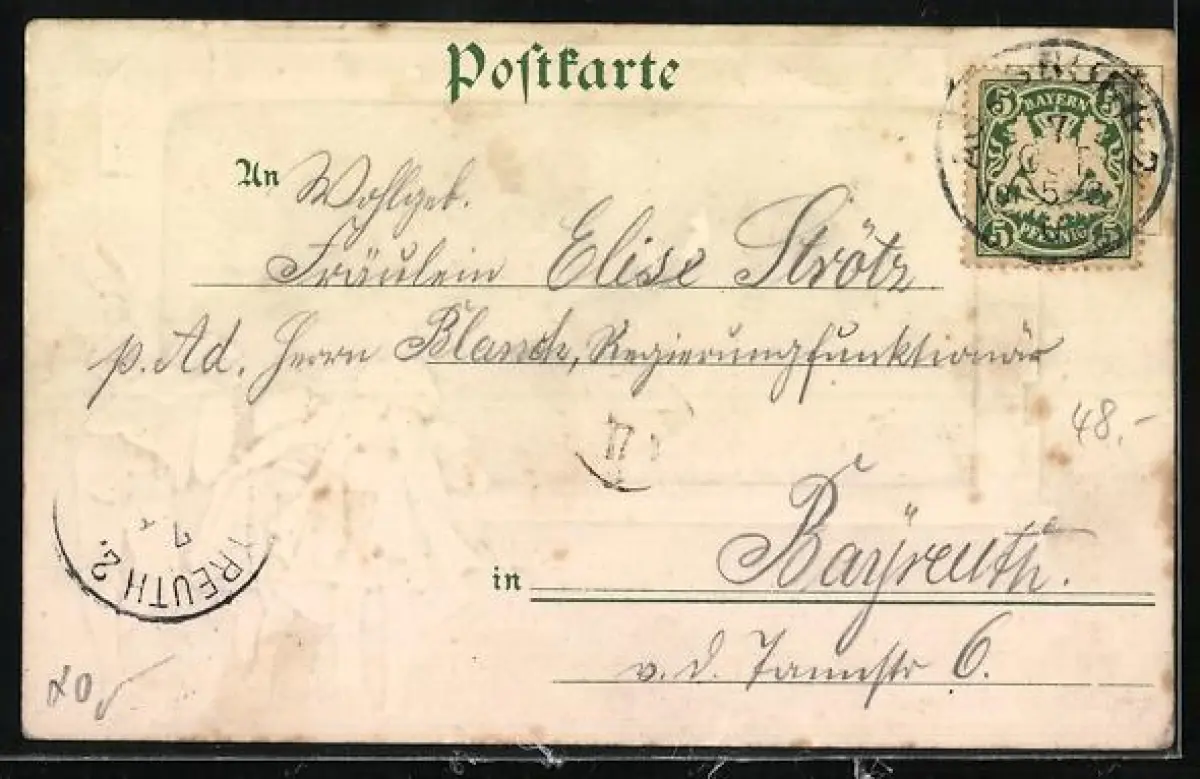 Postkarte
5 BAYERN 5
5 PFENNIG 5
An Wohlgeb.
Fräulein Elise Strötz
p. Ad. Herrn Blanck, Regierungsfunktionär
48.-
in Bayreuth.
v. d. Tannstr 6.
YREUTH 2.
7
20